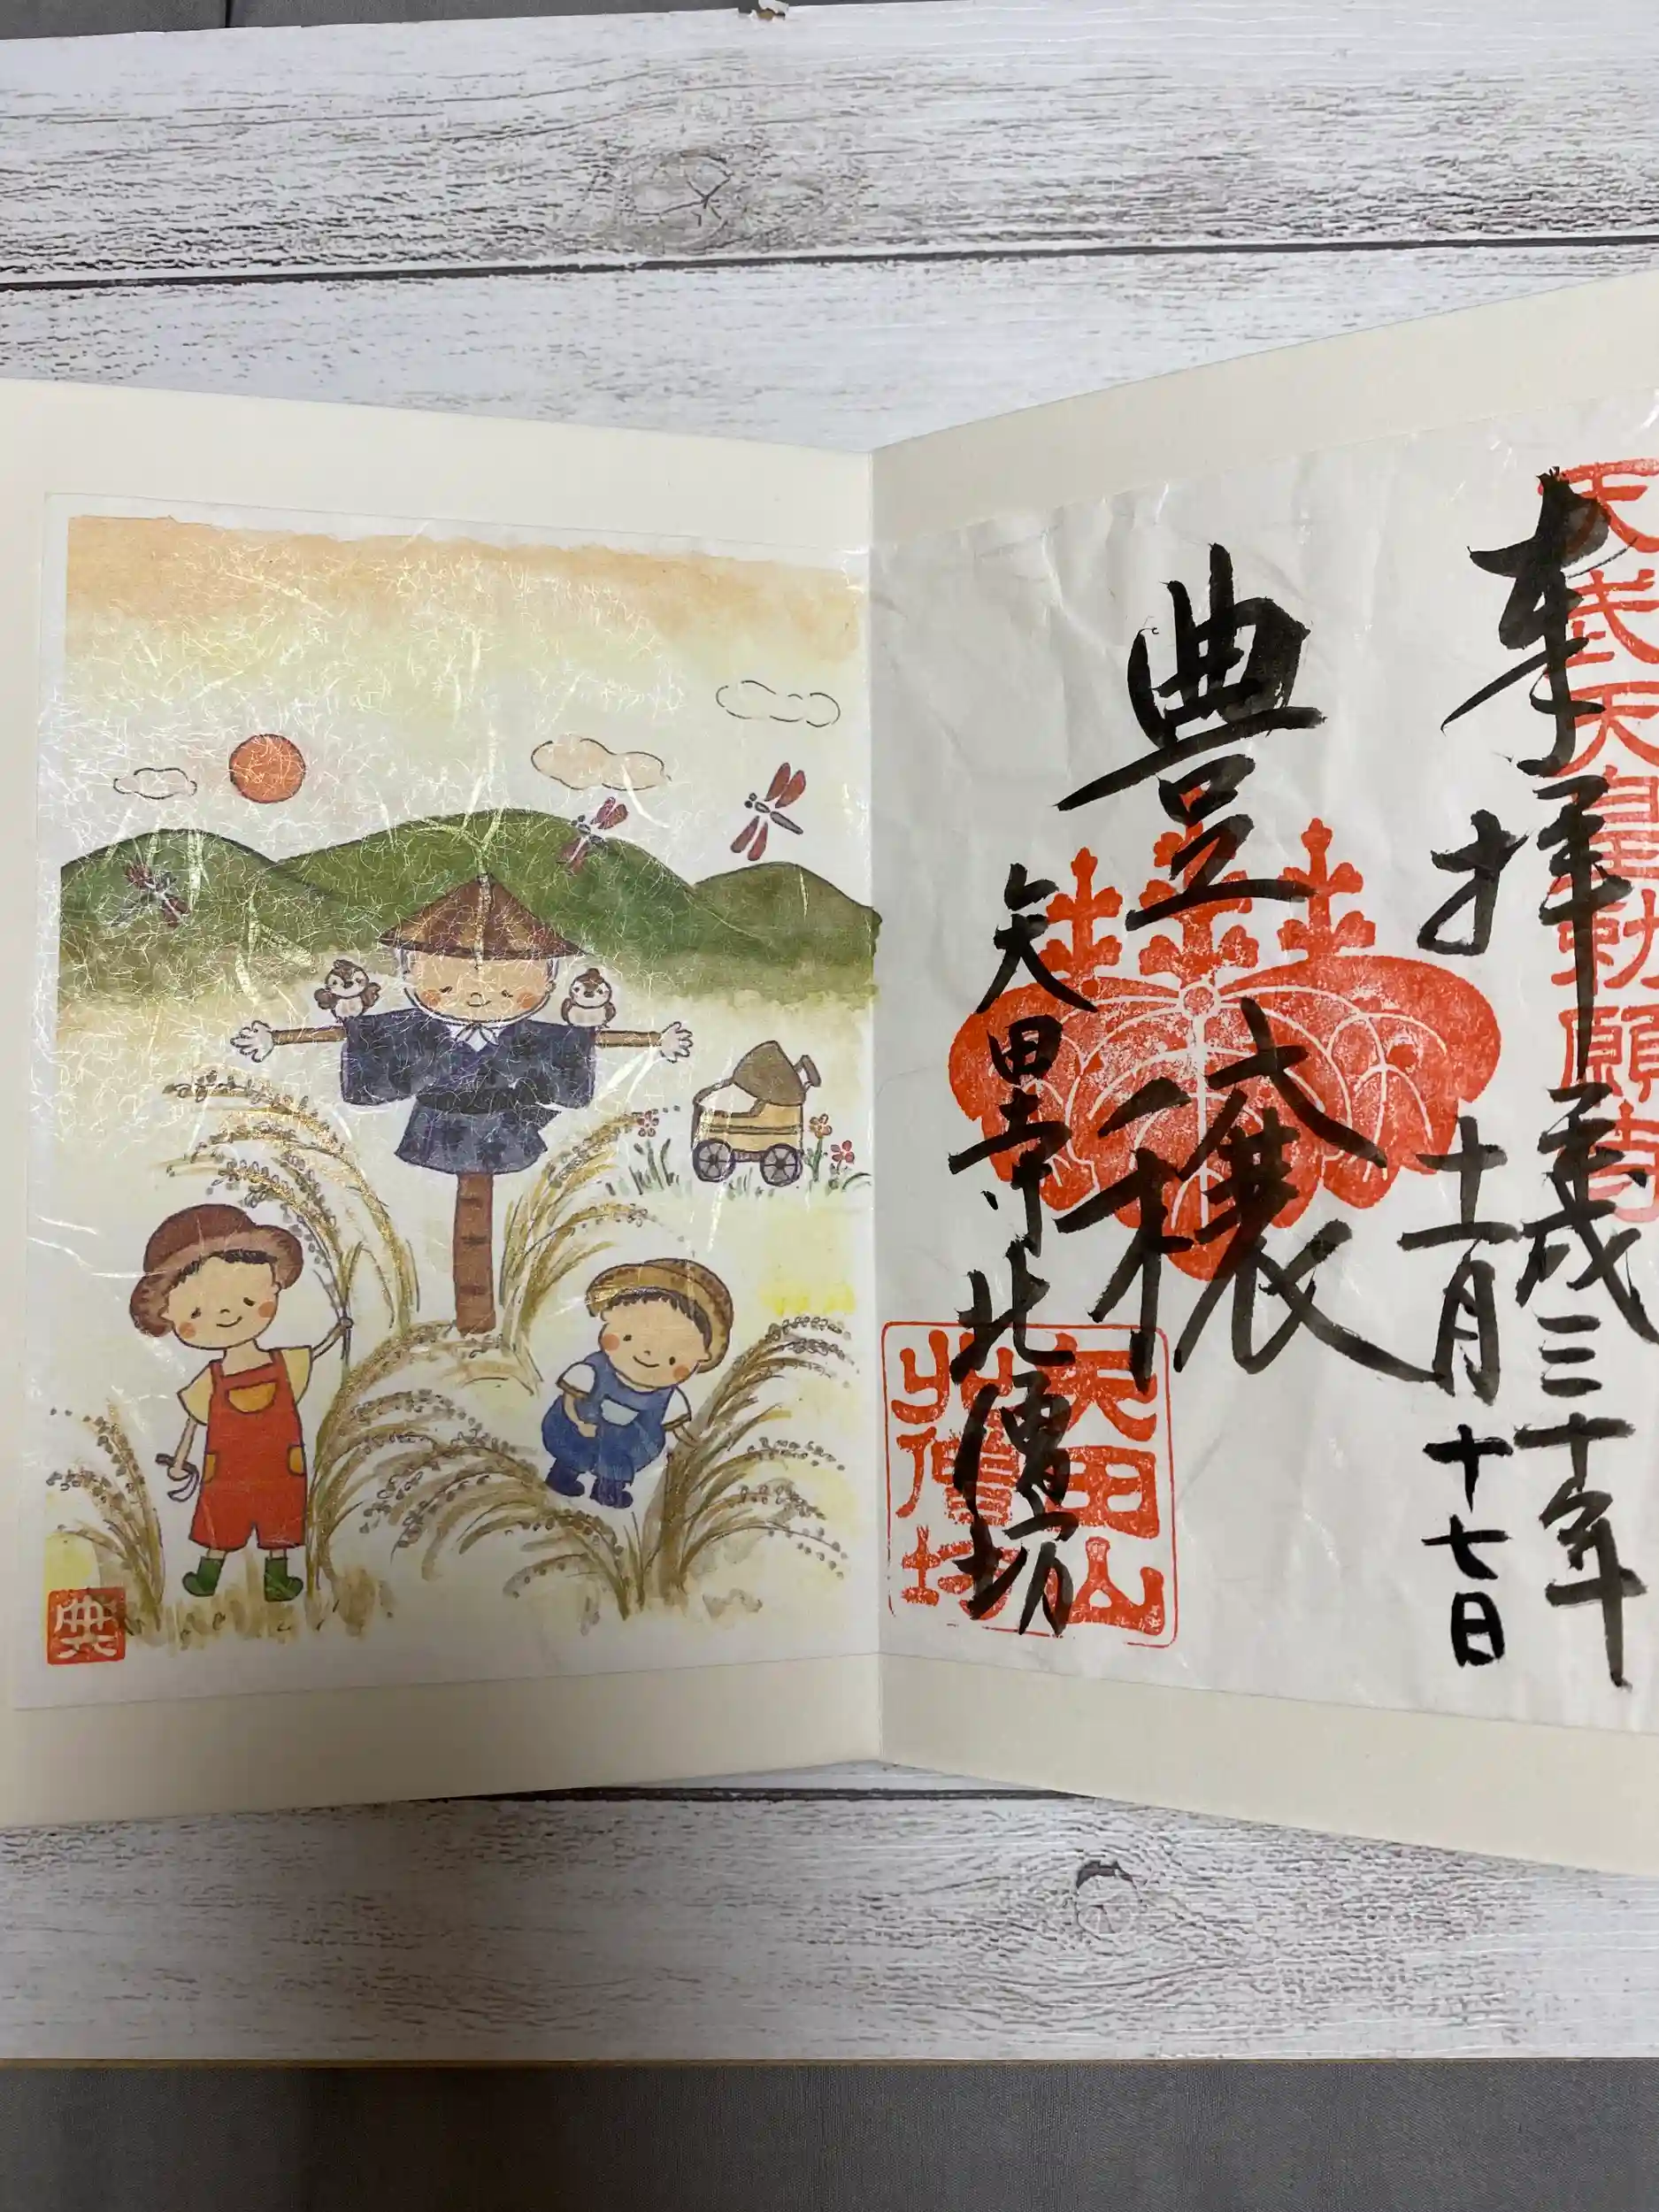 奉拝
平成三十年
十一月十七日
天武天皇勅願寺
豊穣
矢田寺北僧坊
矢田山
北僧坊
典